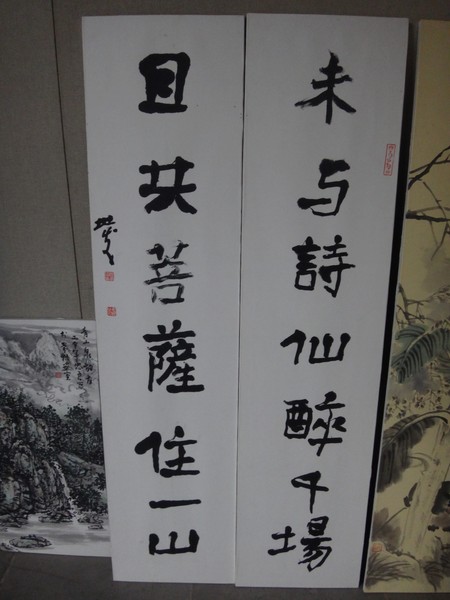 未与詩仙醉千場
且共菩薩住一山